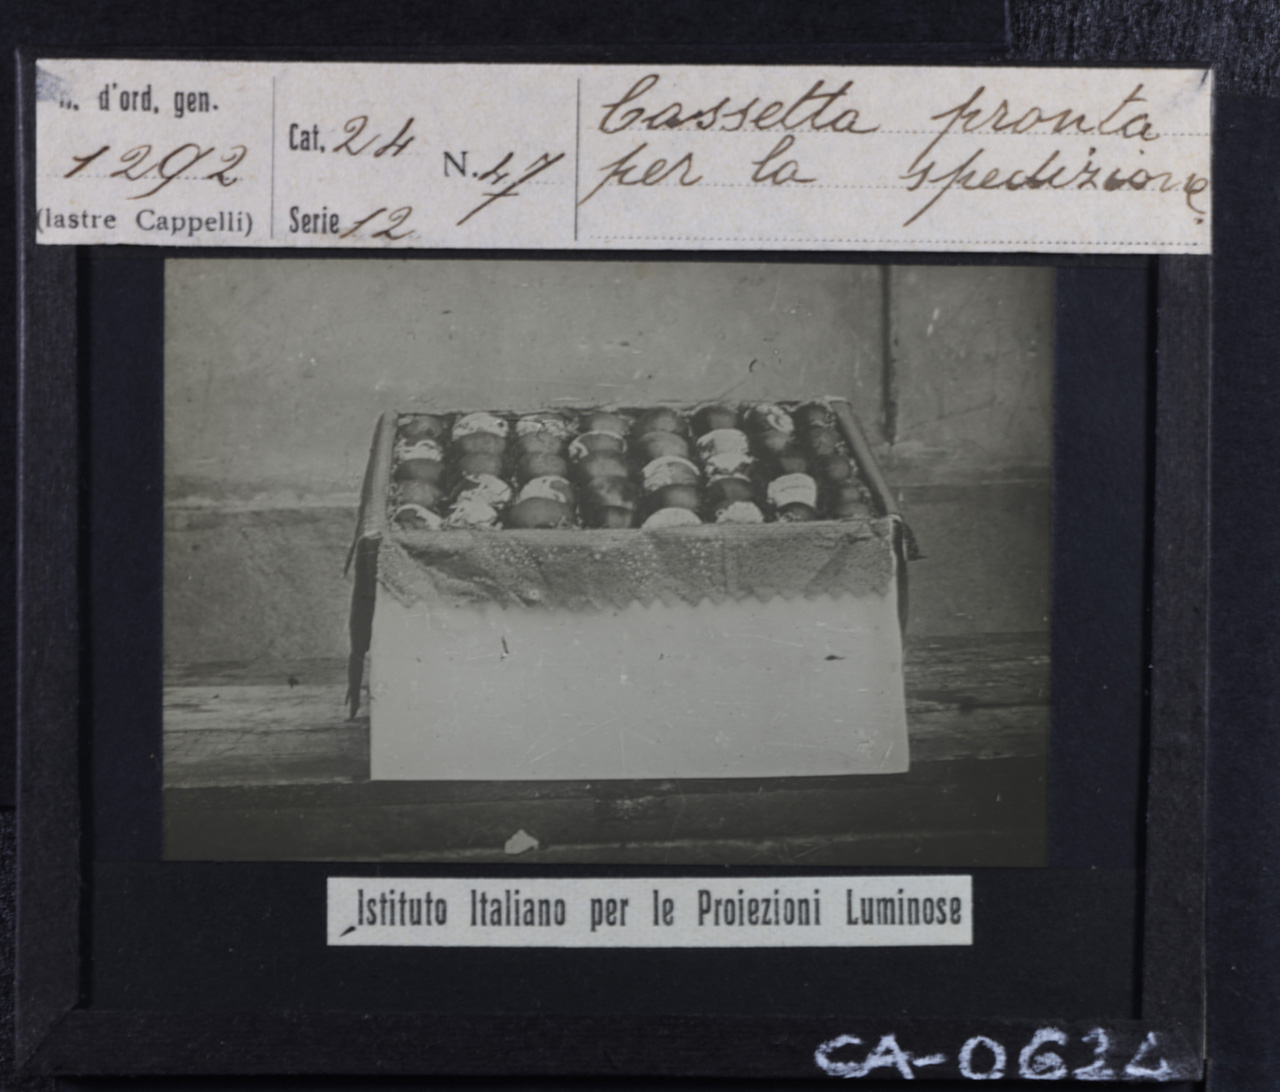 n. d'ord. gen.
1292
(lastre Cappelli)
Cat. 24
N. 47
Serie 12
Cassetta pronta
per la spedizione.
Istituto Italiano per le Proiezioni Luminose